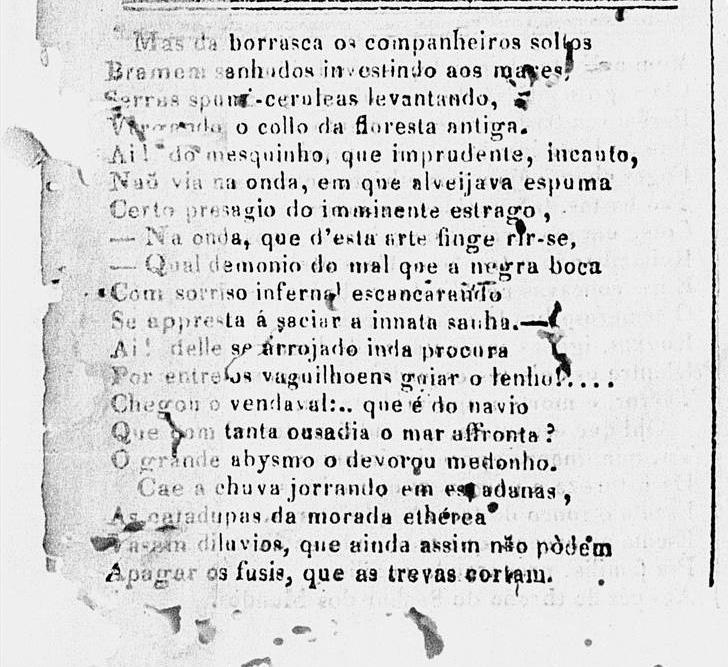 Mas da borrasca os companheiros soltos
Bramem sanhudos investindo aos mares,
Serras spumi-ceruleas levantando,
Vergando o collo da floresta antiga.
Ai! do mesquinho, que imprudente, incauto,
Naõ via na onda, em que alveijava espuma
Certo presagio do imminente estrago,
— Na onda, que d'esta arte finge rir-se,
— Qual demonio do mal que a negra boca
Com sorriso infernal escancarando
Se appresta á saciar a innata sanha.—
Ai! delle se arrojado inda procura
Por entre os vaguilhoens guiar o lenho!....
Chegou o vendaval:.. que é do navio
Que com tanta ousadia o mar affronta?
O grande abysmo o devorou medonho.
Cae a chuva jorrando em espadanas,
As catadupas da morada ethérea
Vasam diluvios, que ainda assim não pódem
Apagar os fusis, que as trevas cortam.